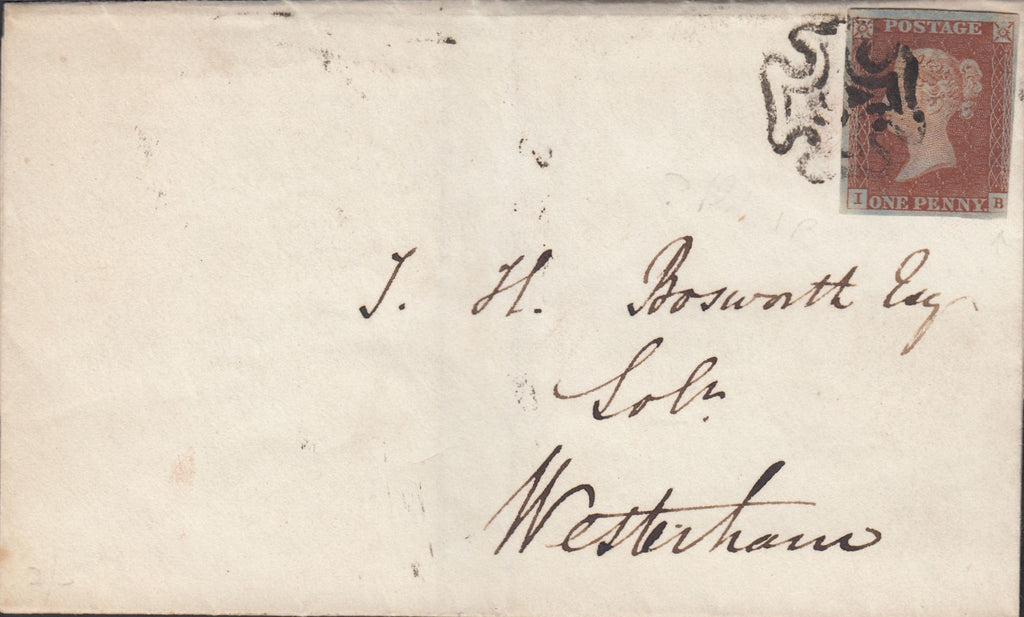 POSTAGE
I ONE PENNY. B
J. H. Bosworth Esq
Solr.
Westerham